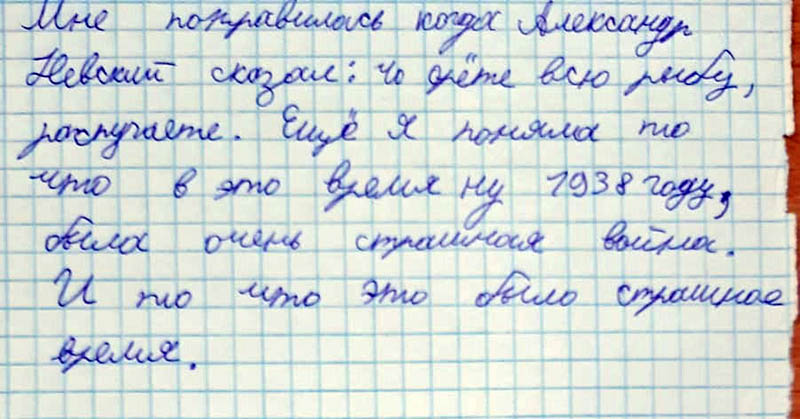 Мне понравилось когда Александр
Невский сказал: чо орёте всю рыбу,
распугаете. Ещё я поняла то
что в это время ну 1938 году,
была очень страшная война.
И то что это было страшное
время.